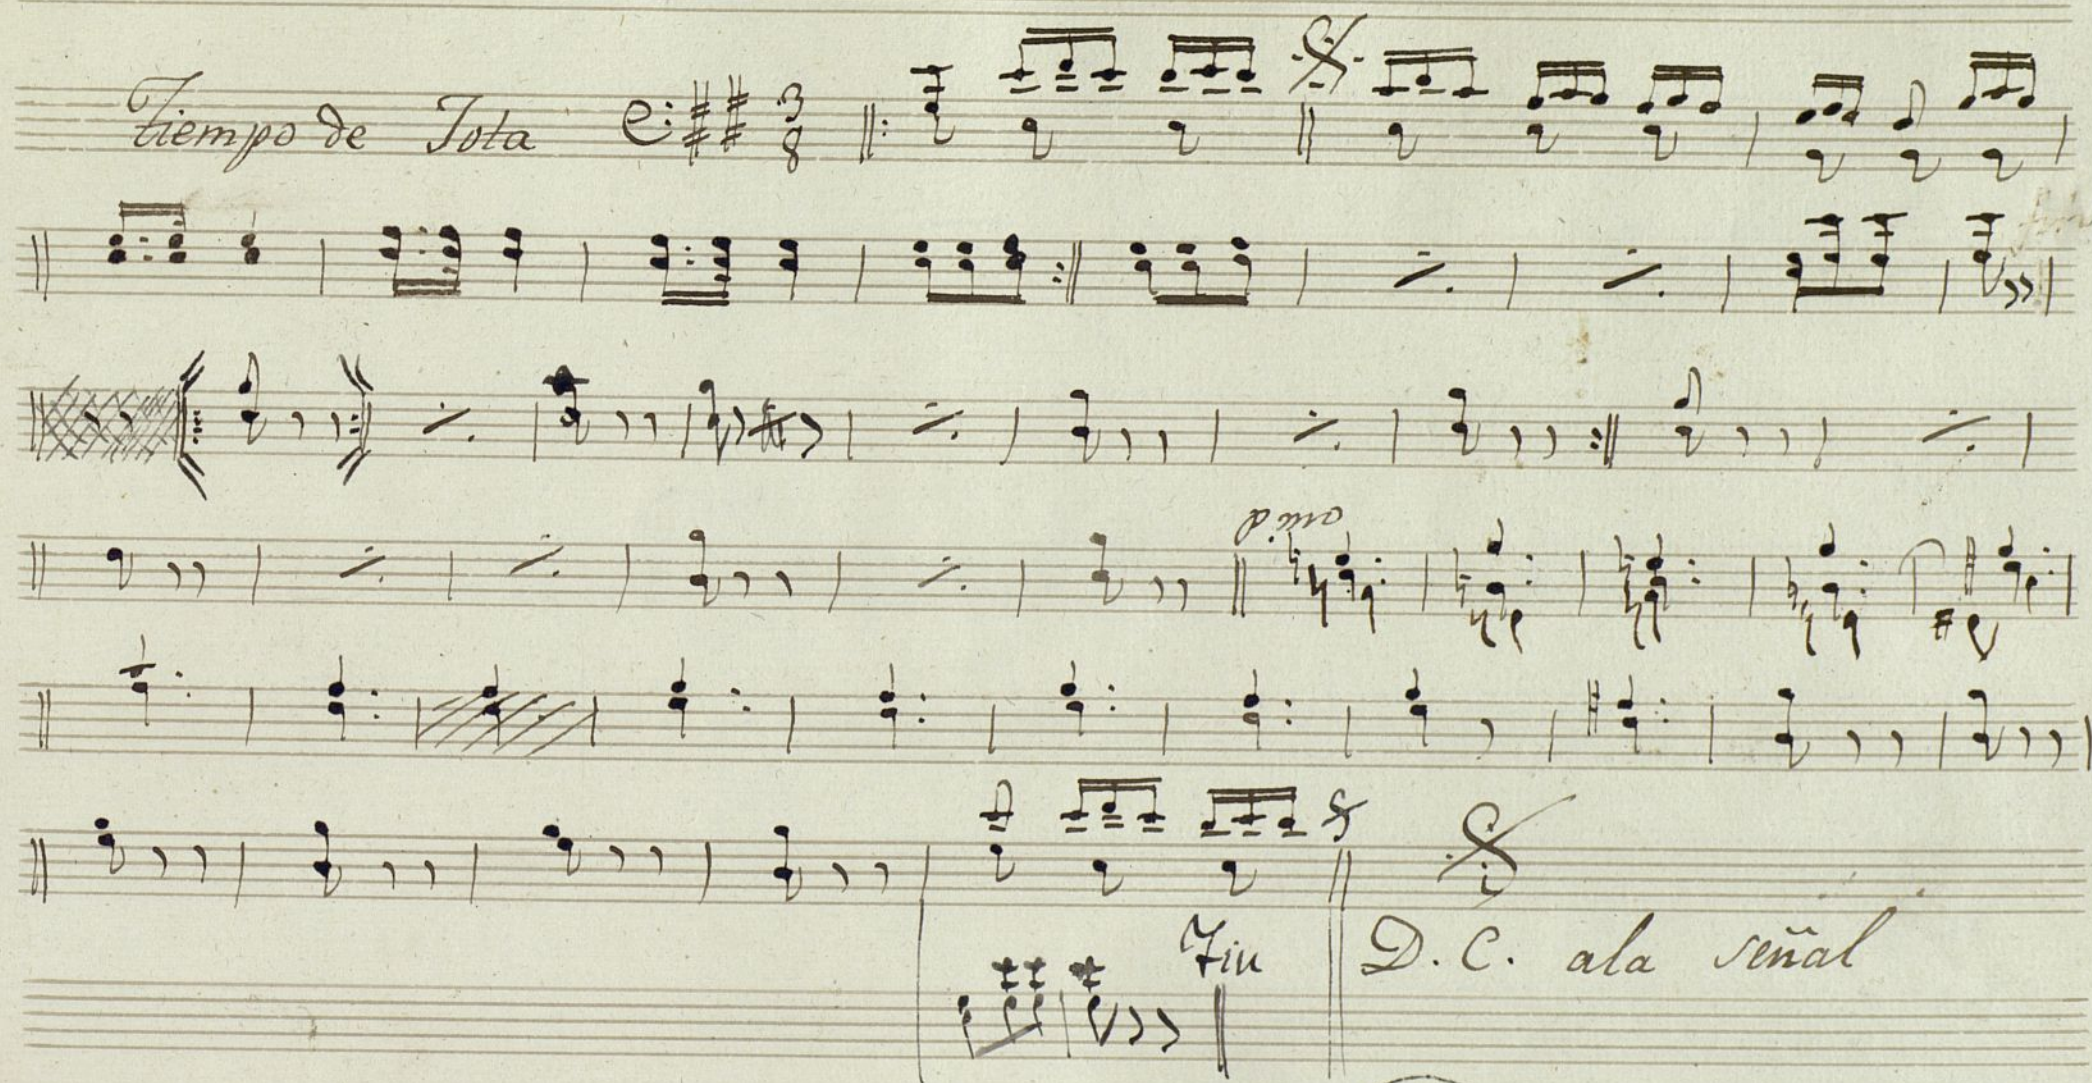 Tiempo de Jota 3 8
Fin
D. C. ala señal